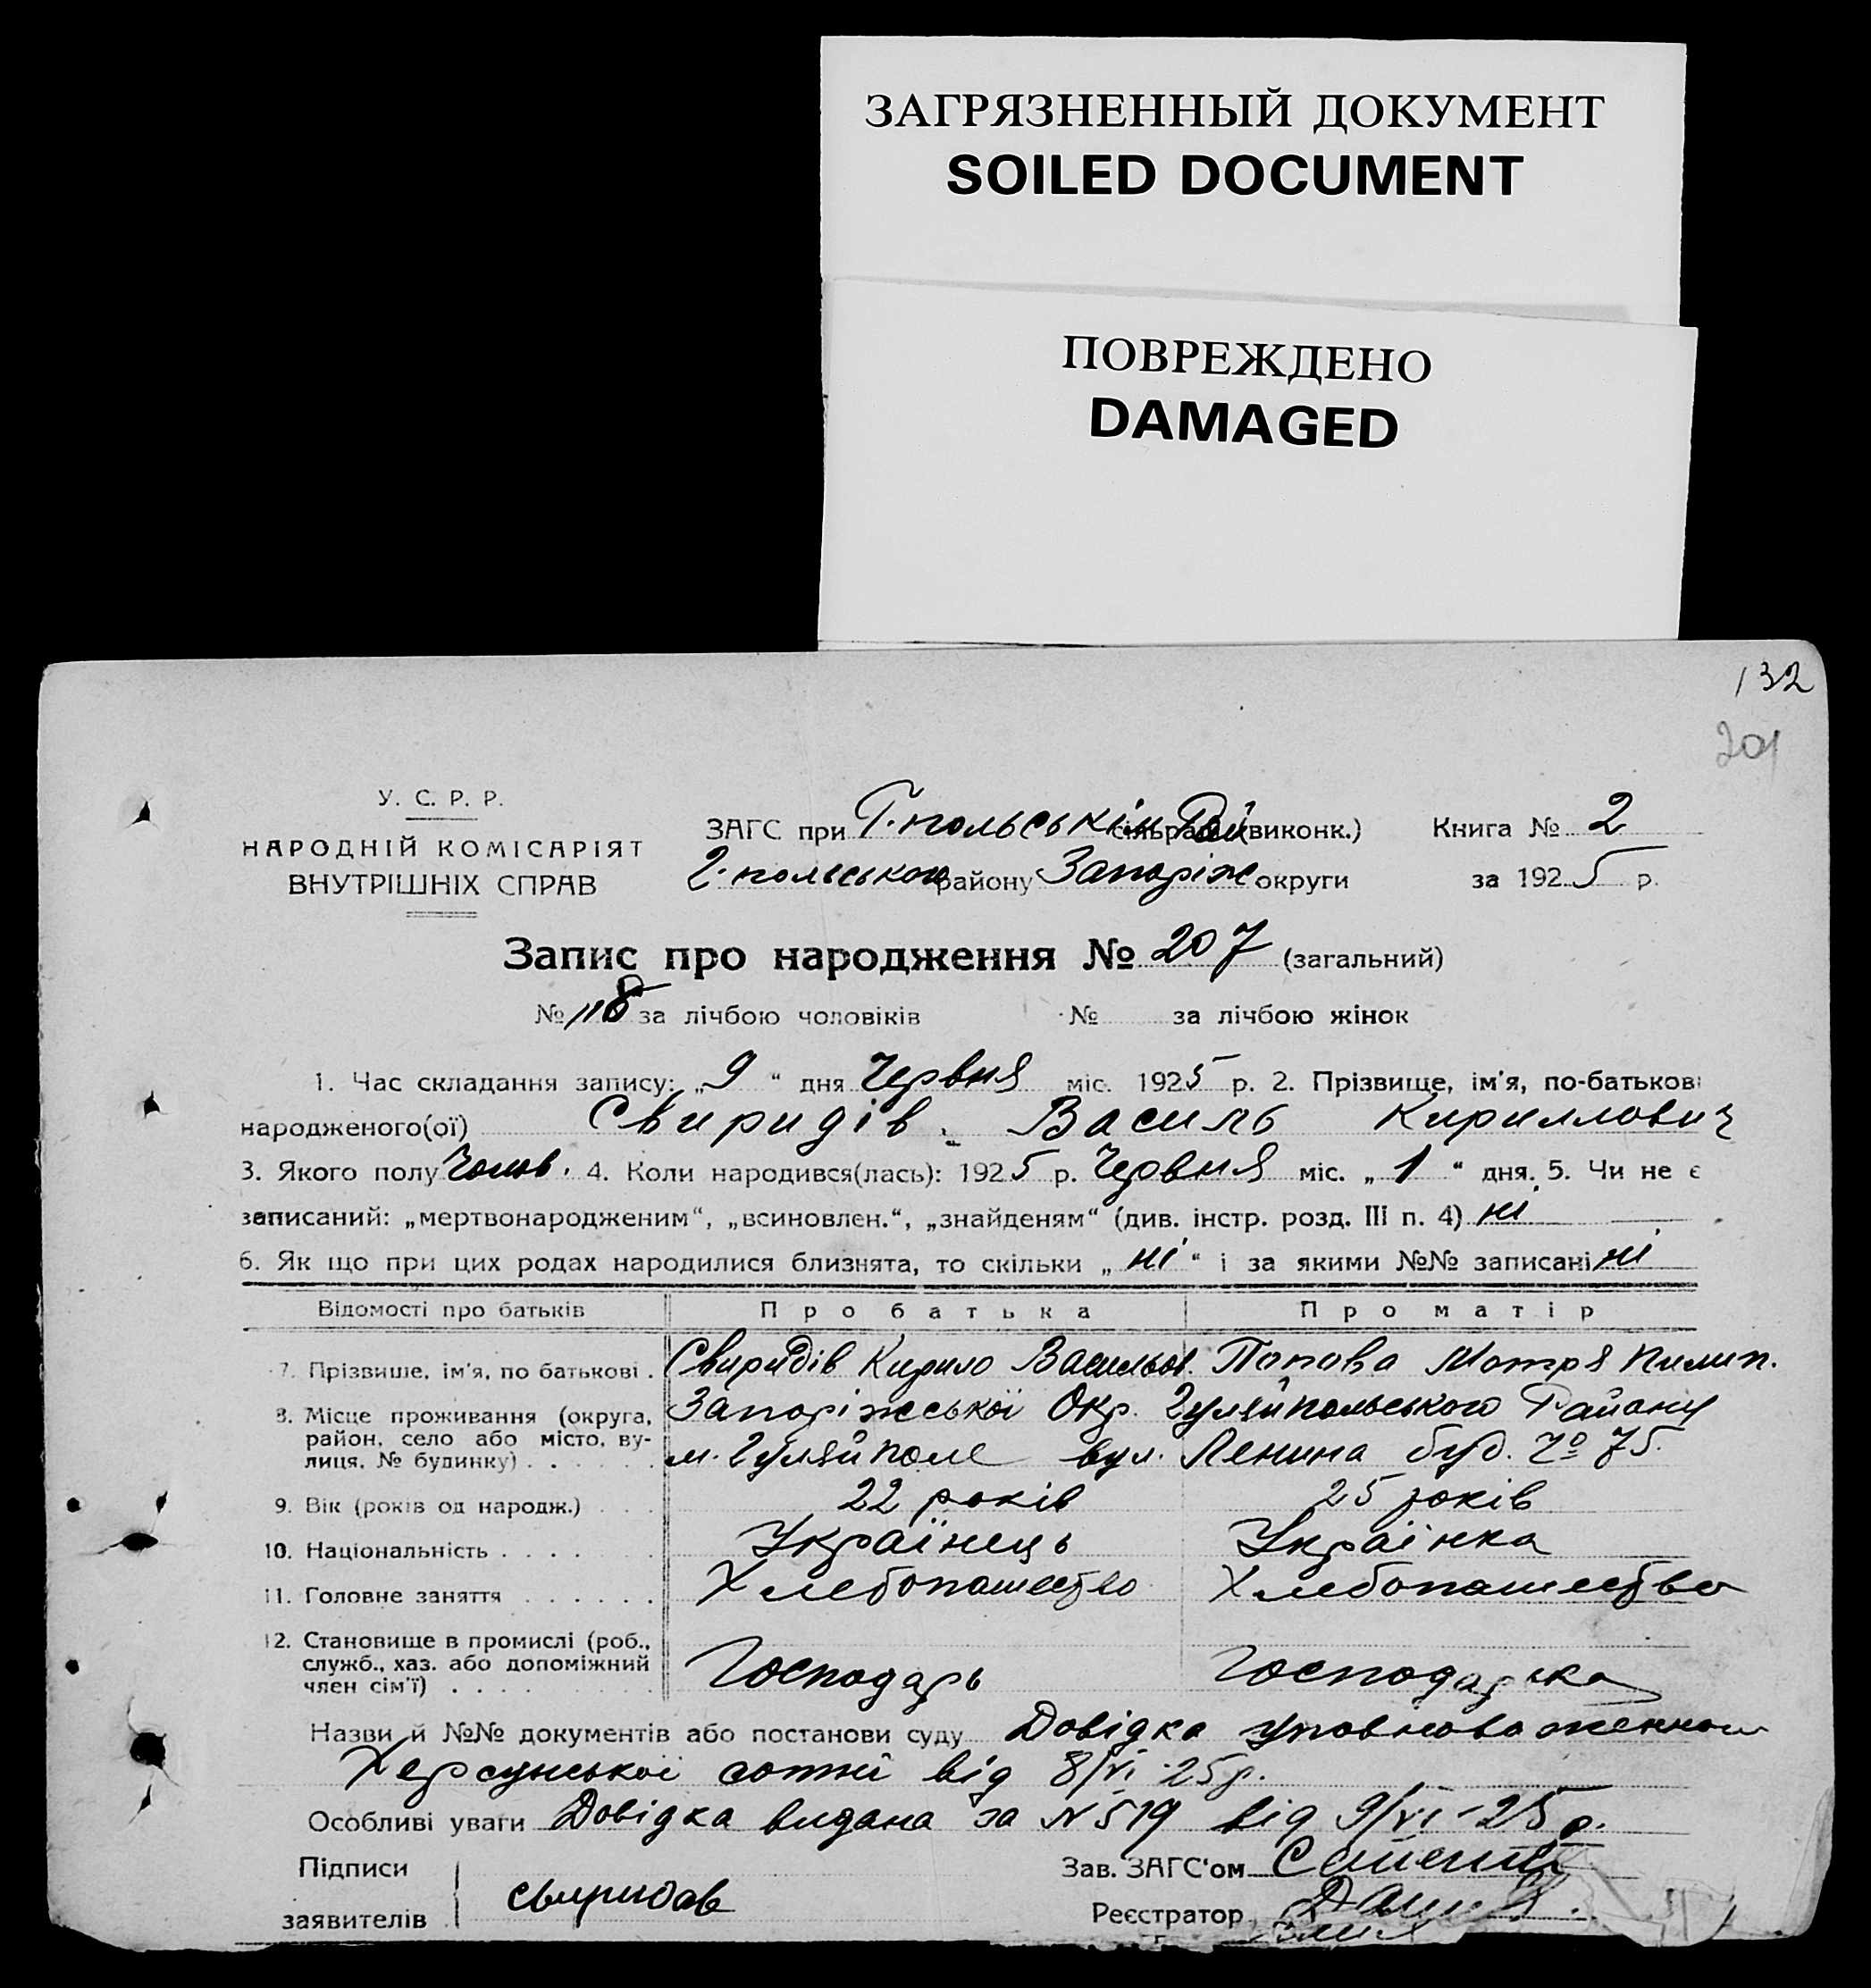 ЗАГРЯЗНЕННЫЙ ДОКУМЕНТ
SOILED DOCUMENT
ПОВРЕЖДЕНО
DAMAGED
132
201
У. С. Р. Р.
НАРОДНІЙ КОМІСАРІЯТ
ВНУТРІШНІХ СПРАВ
ЗАГС при Г.польськім Рай(виконк.) Книга № 2
Г.польського району Запоріж округи за 1925 р.
Запис про народження № 207 (загальний)
№ 118 за лічбою чоловіків № за лічбою жінок
1. Час складання запису: „9“ дня Червня міс. 1925 р. 2. Прізвище, ім'я, по-батькові
народженого(ої) Свиридів Василь Кириллович
3. Якого полу Чолов. 4. Коли народився(лась): 1925 р. Червня міс. „1“ дня. 5. Чи не є
записаний: „мертвонародженим“, „всиновлен.“, „знайденям“ (див. інстр. розд. III п. 4) ні
6. Як що при цих родах народилися близнята, то скільки „ні“ і за якими №№ записані ні
Відомості про батьків Про батька Про матір
7. Прізвише, ім'я, по батькові . Свиридів Кирило Васильов. Попова Мотря Пилип.
8. Місце проживання (округа, Запоріжської Окр. Гуляйпольського Району
район, село або місто, ву-
лиця, № будинку) . . . . . . м. Гуляйполе вул. Ленина буд. № 75.
9. Вік (років од народж.) . . . 22 років 25 років
10. Національність . . . . . . Українець Українка
11. Головне заняття . . . . . . Хлебопашество Хлебопашество
12. Становище в промислі (роб.,
служб., хаз. або допоміжний
член сім'ї) . . . . . . . . . Господарь Господарка
Назви й №№ документів або постанови суду Довідка
Херсунської сотні від 8/VI-25р.
Особливі уваги Довідка видана за N 519 від 9/VI-25 р.
Підписи
заявителів свиридов
Зав. ЗАГС'ом
Реєстратор